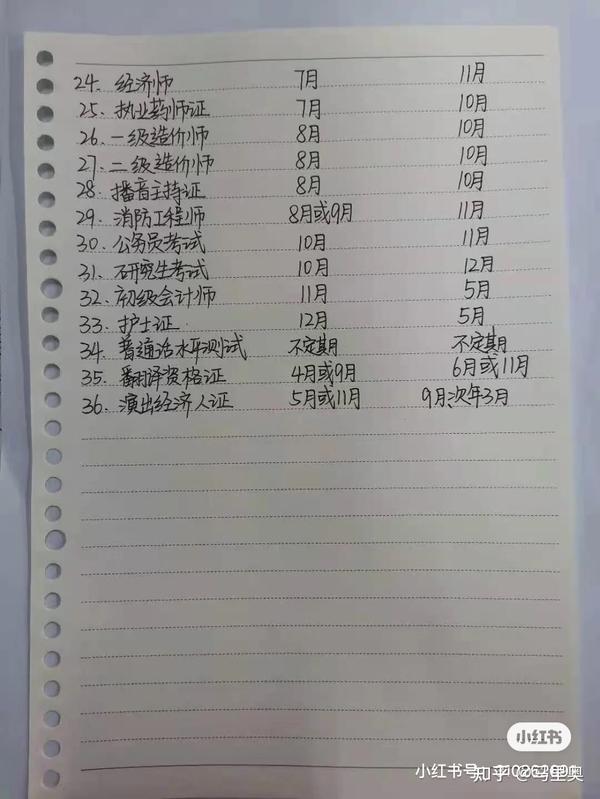 24. 经济师 7月 11月
25. 执业药师证 7月 10月
26. 一级造价师 8月 10月
27. 二级造价师 8月 10月
28. 播音主持证 8月 10月
29. 消防工程师 8月或9月 11月
30. 公务员考试 10月 11月
31. 研究生考试 10月 12月
32. 初级会计师 11月 5月
33. 护士证 12月 5月
34. 普通话水平测试 不定期 不定期
35. 翻译资格证 4月或9月 6月或11月
36. 演出经济人证 5月或11月 9月,次年3月
小红书
小红书号:
知乎 @马里奥